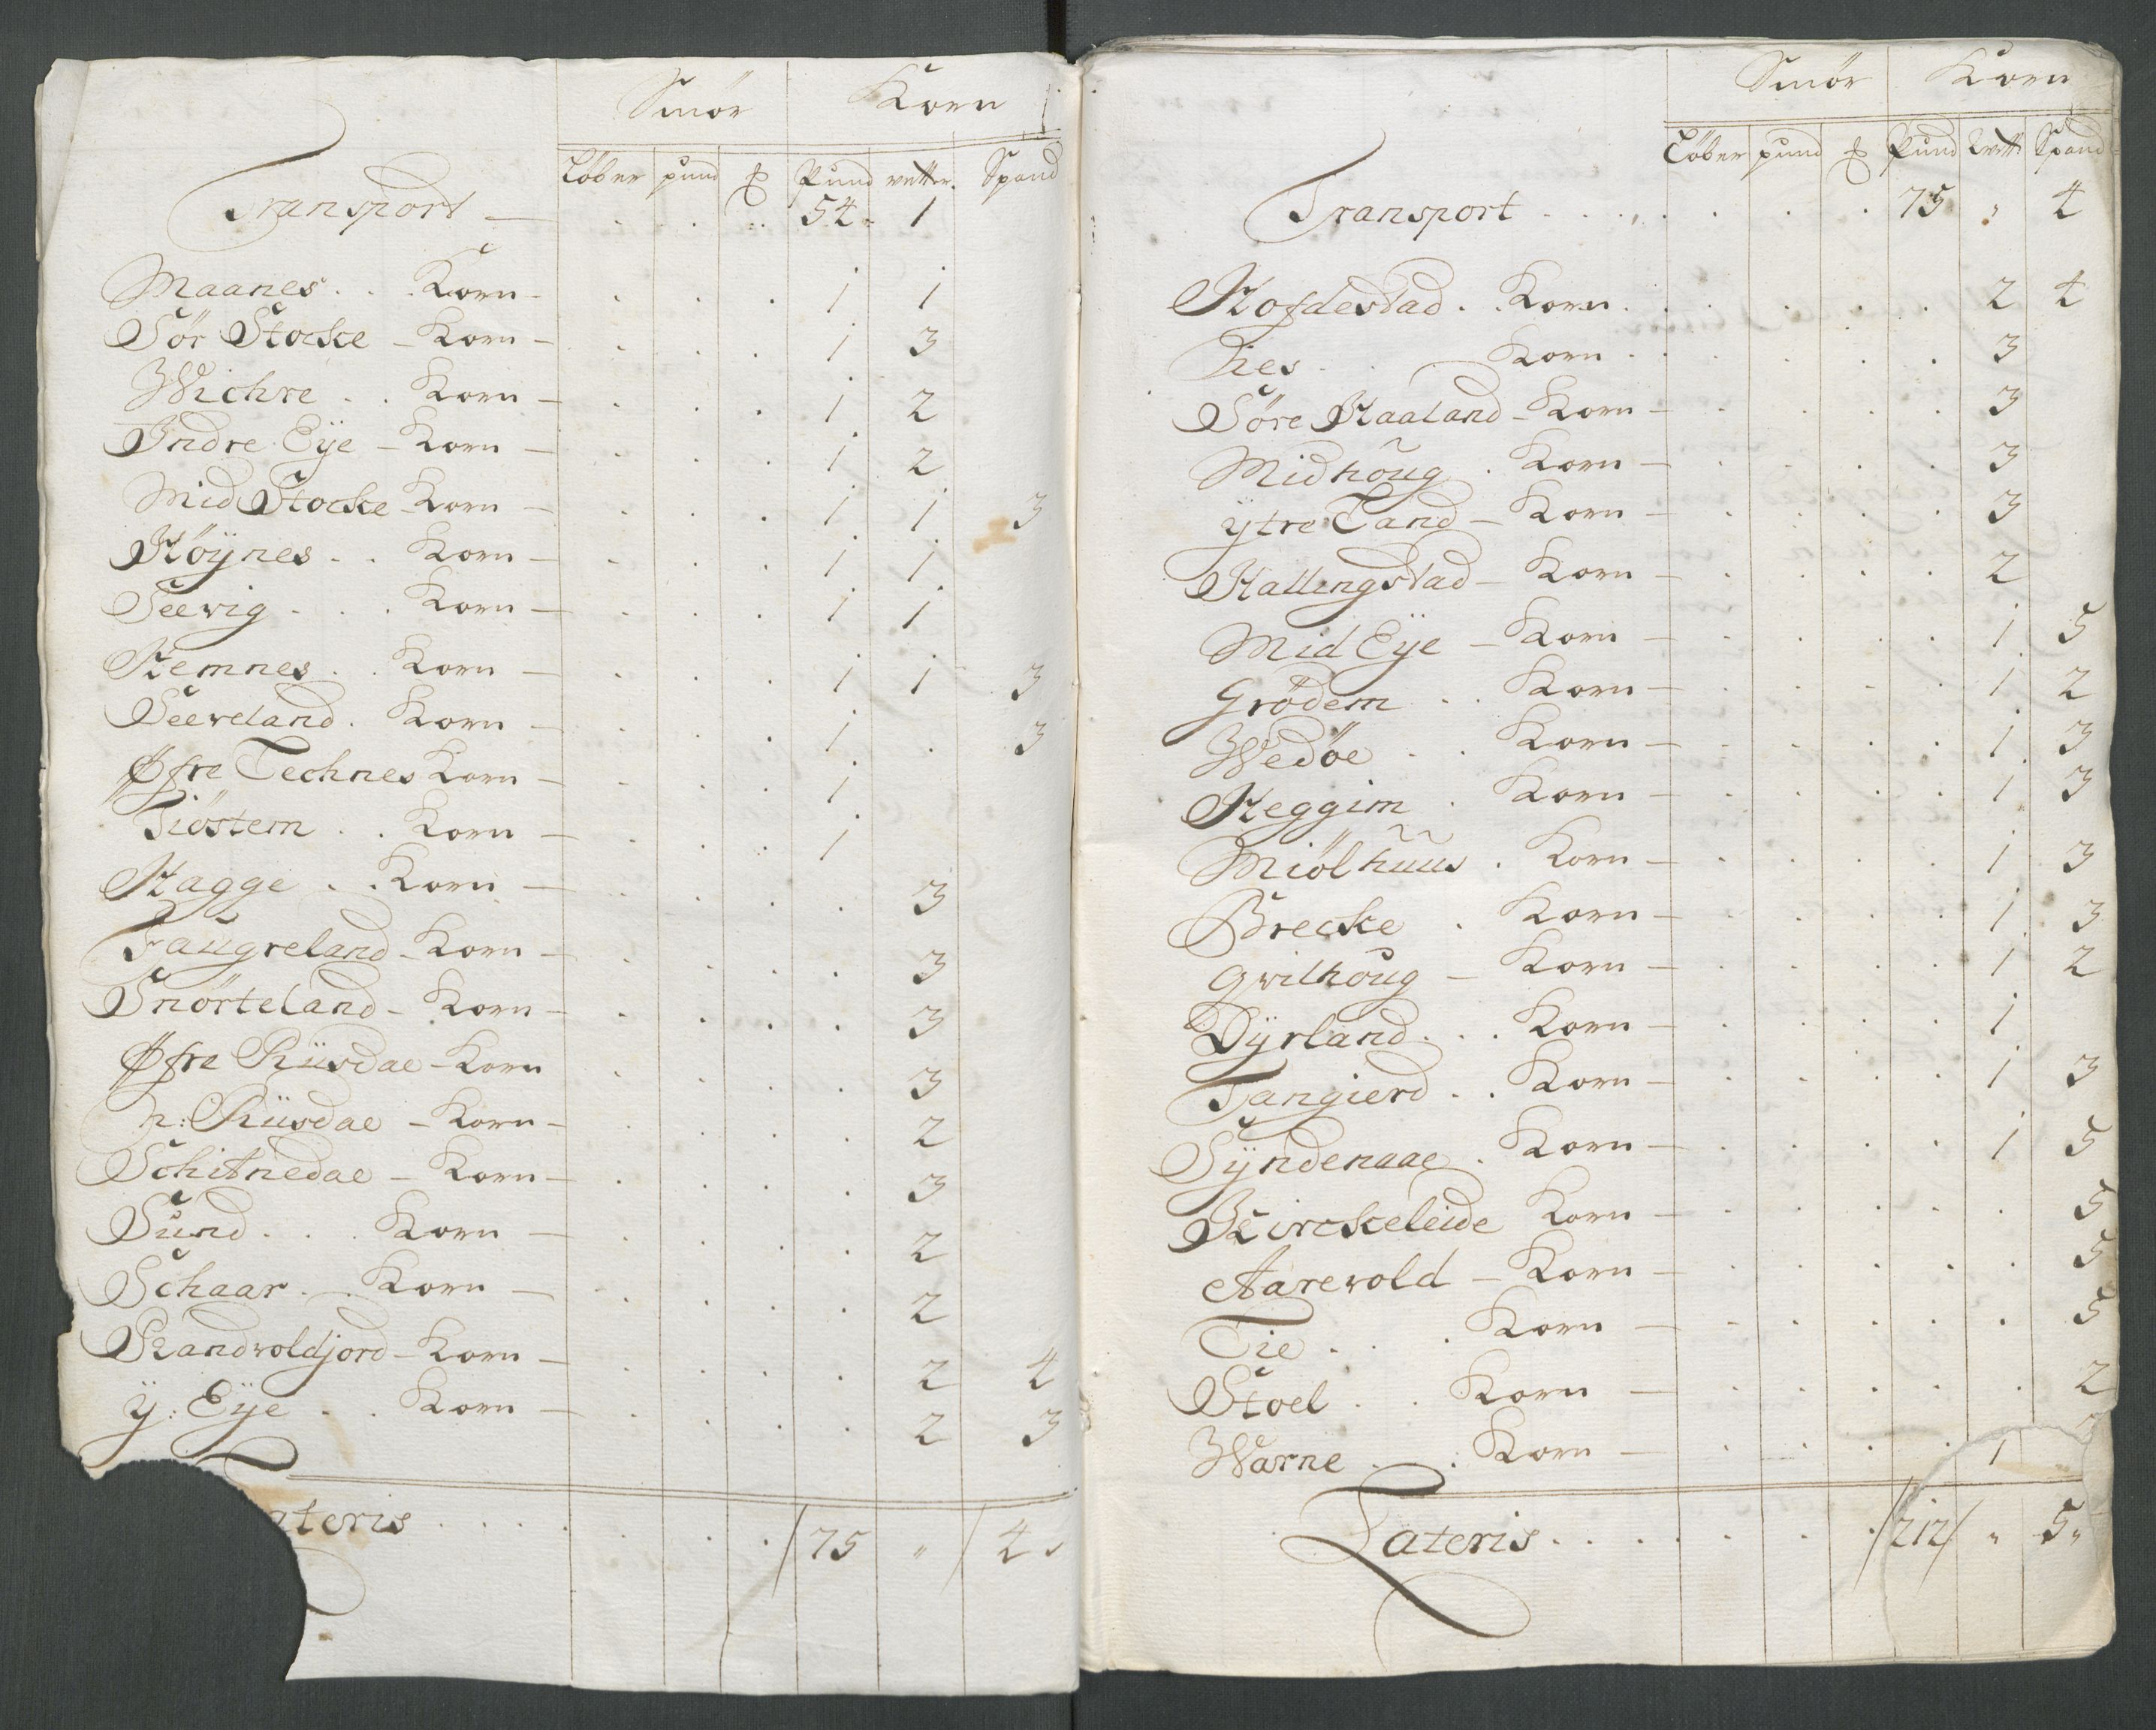 Smör Korn
Löber pund ℔ Pund vetter. Spand
Transport — 54 - 1
Maanes . . . Korn - 1 1
Sör Stocke - Korn - 1 3
Wichre . . Korn - 1 2
Indre Eÿe - Korn - 1 2
Mid Stocke Korn - 1 1 3
Höÿnes . . Korn - 1 1
Seevig . . . Korn - 1 1
Hemnes . . Korn - 1 1 3
Seeveland . Korn - 1 . 3
Øfre Technes Korn - 1
Tiöstem . . Korn - 1
Hagge . . Korn - 3
Faugreland - Korn - 3
Snörteland - Korn - 3
Øfre Riisdae - Korn 3
n: Riisdae - Korn - 2
Schitnedae - Korn - 3
Sund . . . Korn - 2
Schaar . . Korn - 2
Randvoldjord - Korn - 2 4
ÿ: Eÿe . . Korn - 2 3
ateris . . . . 75 „ 4
Smör Korn
Löber pund ℔ Pund Vett: Spand
Transport . . . . 75 „ 4
Hofdestad . . Korn . 2 4
Korn . 3
Söre Haaland - Korn - 3
Midhoug . Korn - 3
ÿtre Tand - Korn - 3
Hallingstad - Korn - 2
Mid Eÿe - Korn - 1 5
Grödem . . Korn - 1 2
Wedöe . . Korn - 1 3
Heggim . Korn - 1 3
Miölhuus . Korn - 1 3
Brecke . Korn - 1 3
Qvilhoug - Korn - 1 2
Dÿrland . . . Korn - 1
Tangierd . . Korn - 1 3
Sÿndenaae . Korn - 1 5
Kirckeleide Korn - 5
Aarevold - Korn - 5
Tie . . . Korn - 5
Stoel . . Korn - 2
Warne . . Korn - 1
Lateris . . . . . 212 „ 5„